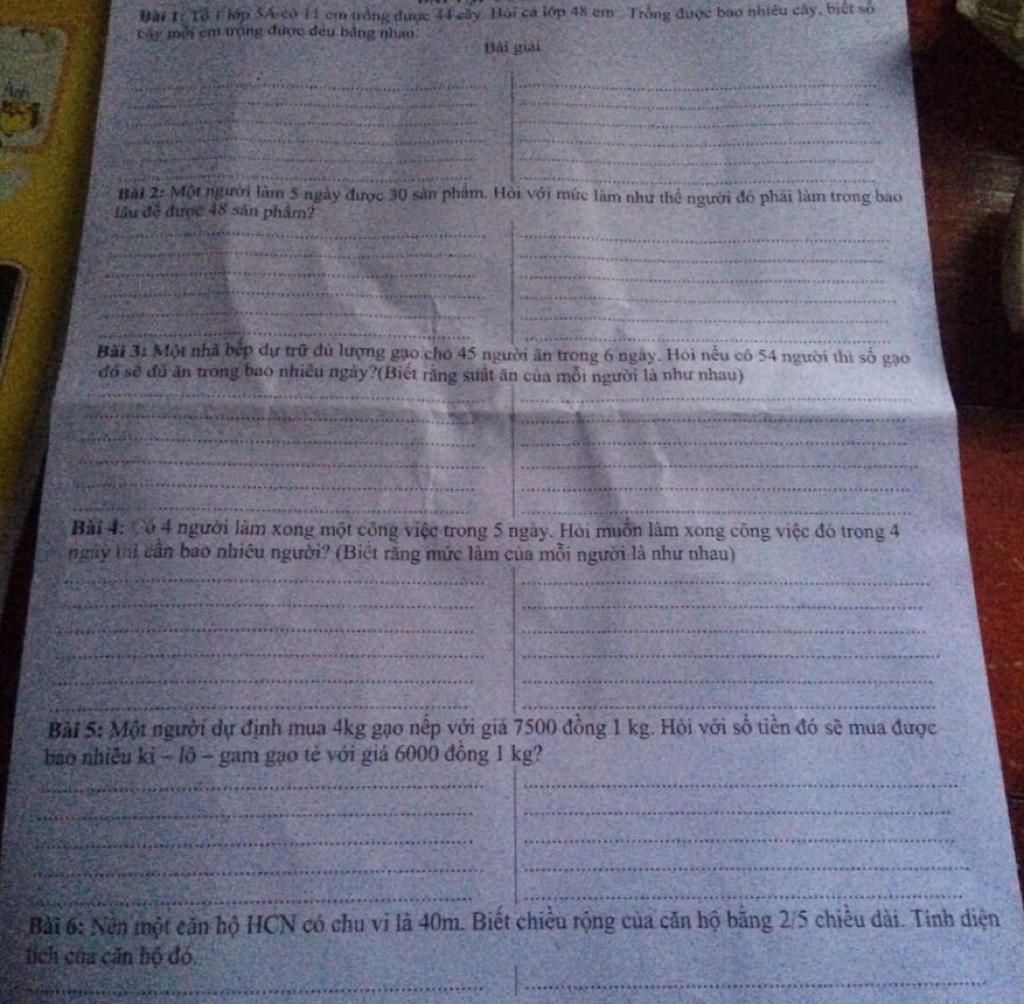 Bài 1: Tổ 1 lớp 5A có 11 em trồng được 44 cây. Hỏi cả lớp 48 em . Trồng được bao nhiêu cây, biết số
cây mỗi em trồng được đều bằng nhau.
Bài giải
Bài 2: Một người làm 5 ngày được 30 sản phẩm. Hỏi với mức làm như thế người đó phải làm trong bao
lâu để được 48 sản phẩm?
Bài 3: Một nhà bếp dự trữ đủ lượng gạo cho 45 người ăn trong 6 ngày. Hỏi nếu có 54 người thì số gạo
đó sẽ đủ ăn trong bao nhiêu ngày?(Biết rằng suất ăn của mỗi người là như nhau)
Bài 4: Có 4 người làm xong một công việc trong 5 ngày. Hỏi muốn làm xong công việc đó trong 4
ngày thì cần bao nhiêu người? (Biết rằng mức làm của mỗi người là như nhau)
Bài 5: Một người dự định mua 4kg gạo nếp với giá 7500 đồng 1 kg. Hỏi với số tiền đó sẽ mua được
bao nhiêu ki – lô – gam gạo tẻ với giá 6000 đồng 1 kg?
Bài 6: Nền một căn hộ HCN có chu vi là 40m. Biết chiều rộng của căn hộ bằng 2/5 chiều dài. Tính diện
tích của căn hộ đó.
Anh